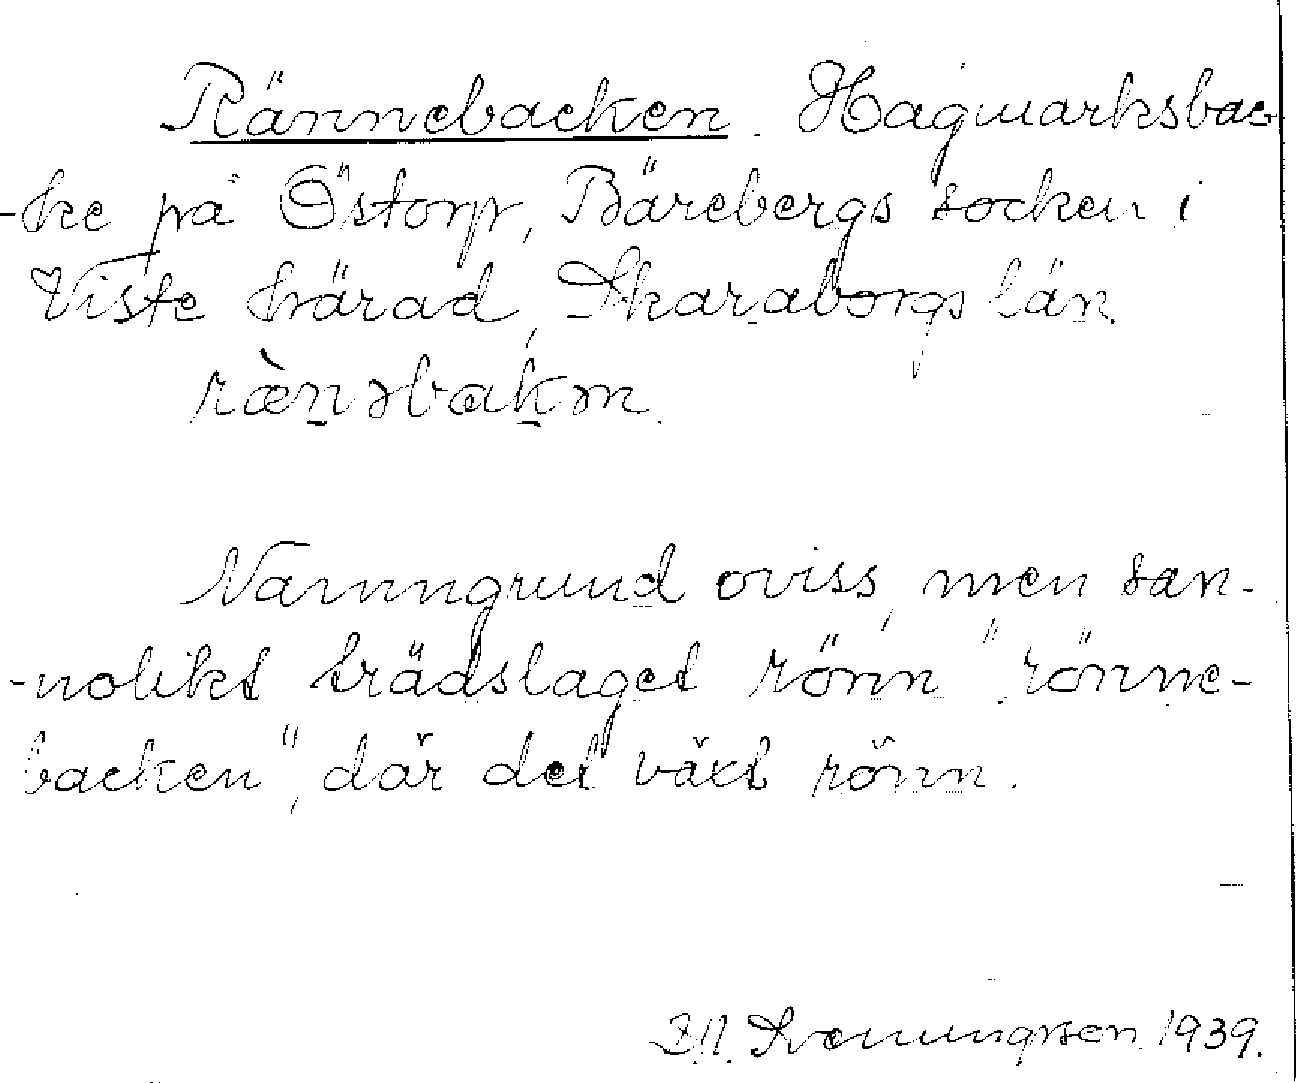 Rännebacken. Hagmarksbac-
-ke på Östorp, Bärebergs socken i
Viste härad, Skaraborgs län.
ræ̀n̠əbak̠ən.
Namngrund oviss, men san-
-nolikt trädslaget rönn "rönne-
backen", där det växt rönn.
Sveningsson. 1939.